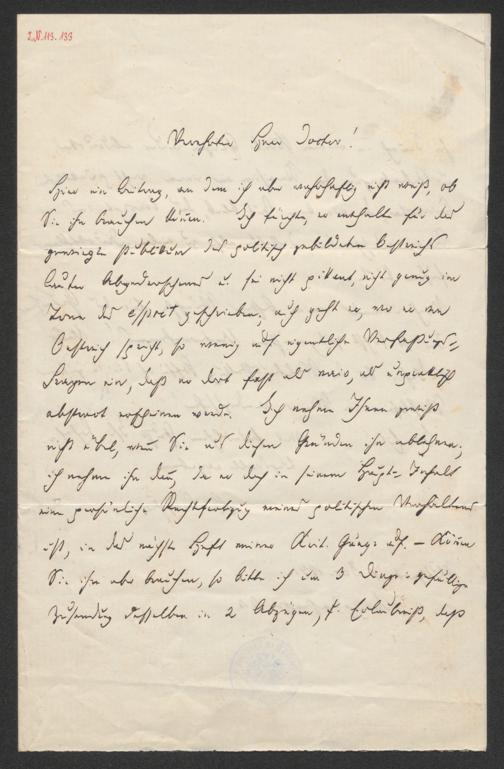 I.N. 113.133
Verehrter Herr Doctor!
Hier ein Beitrag, von dem ich aber wahrhaftig nicht weiß, ob
Sie ihn brauchen können. Ich fürchte, er enthalte für das
Publikum des politisch gebildeten Oestreichs
lauter u. sei nicht pikant, nicht genug im
Tone des esprit geschrieben; auch geht er, wo er von
Oestreich spricht, so wenig auf eigentliche Verfassungs-
Fragen ein, daß er dort fast als naiv, als unpraktisch
abstract erscheinen werde. Ich nehme Ihnen gewiß
nicht übel, wenn Sie aus diesen Gründen ihn ablehnen;
ich nehme ihn dann, da er doch in seinem Haupt-Inhalt
eine persönliche Rechtfertigung meines politischen Verhaltens
ist, in das nächste Heft meiner Krit. Gänge auf. – Können
Sie ihn aber brauchen, so bitte ich um 3 Dinge: gefällige
Zusendung desselben in 2 Abzügen, f. Erlaubniß, daß